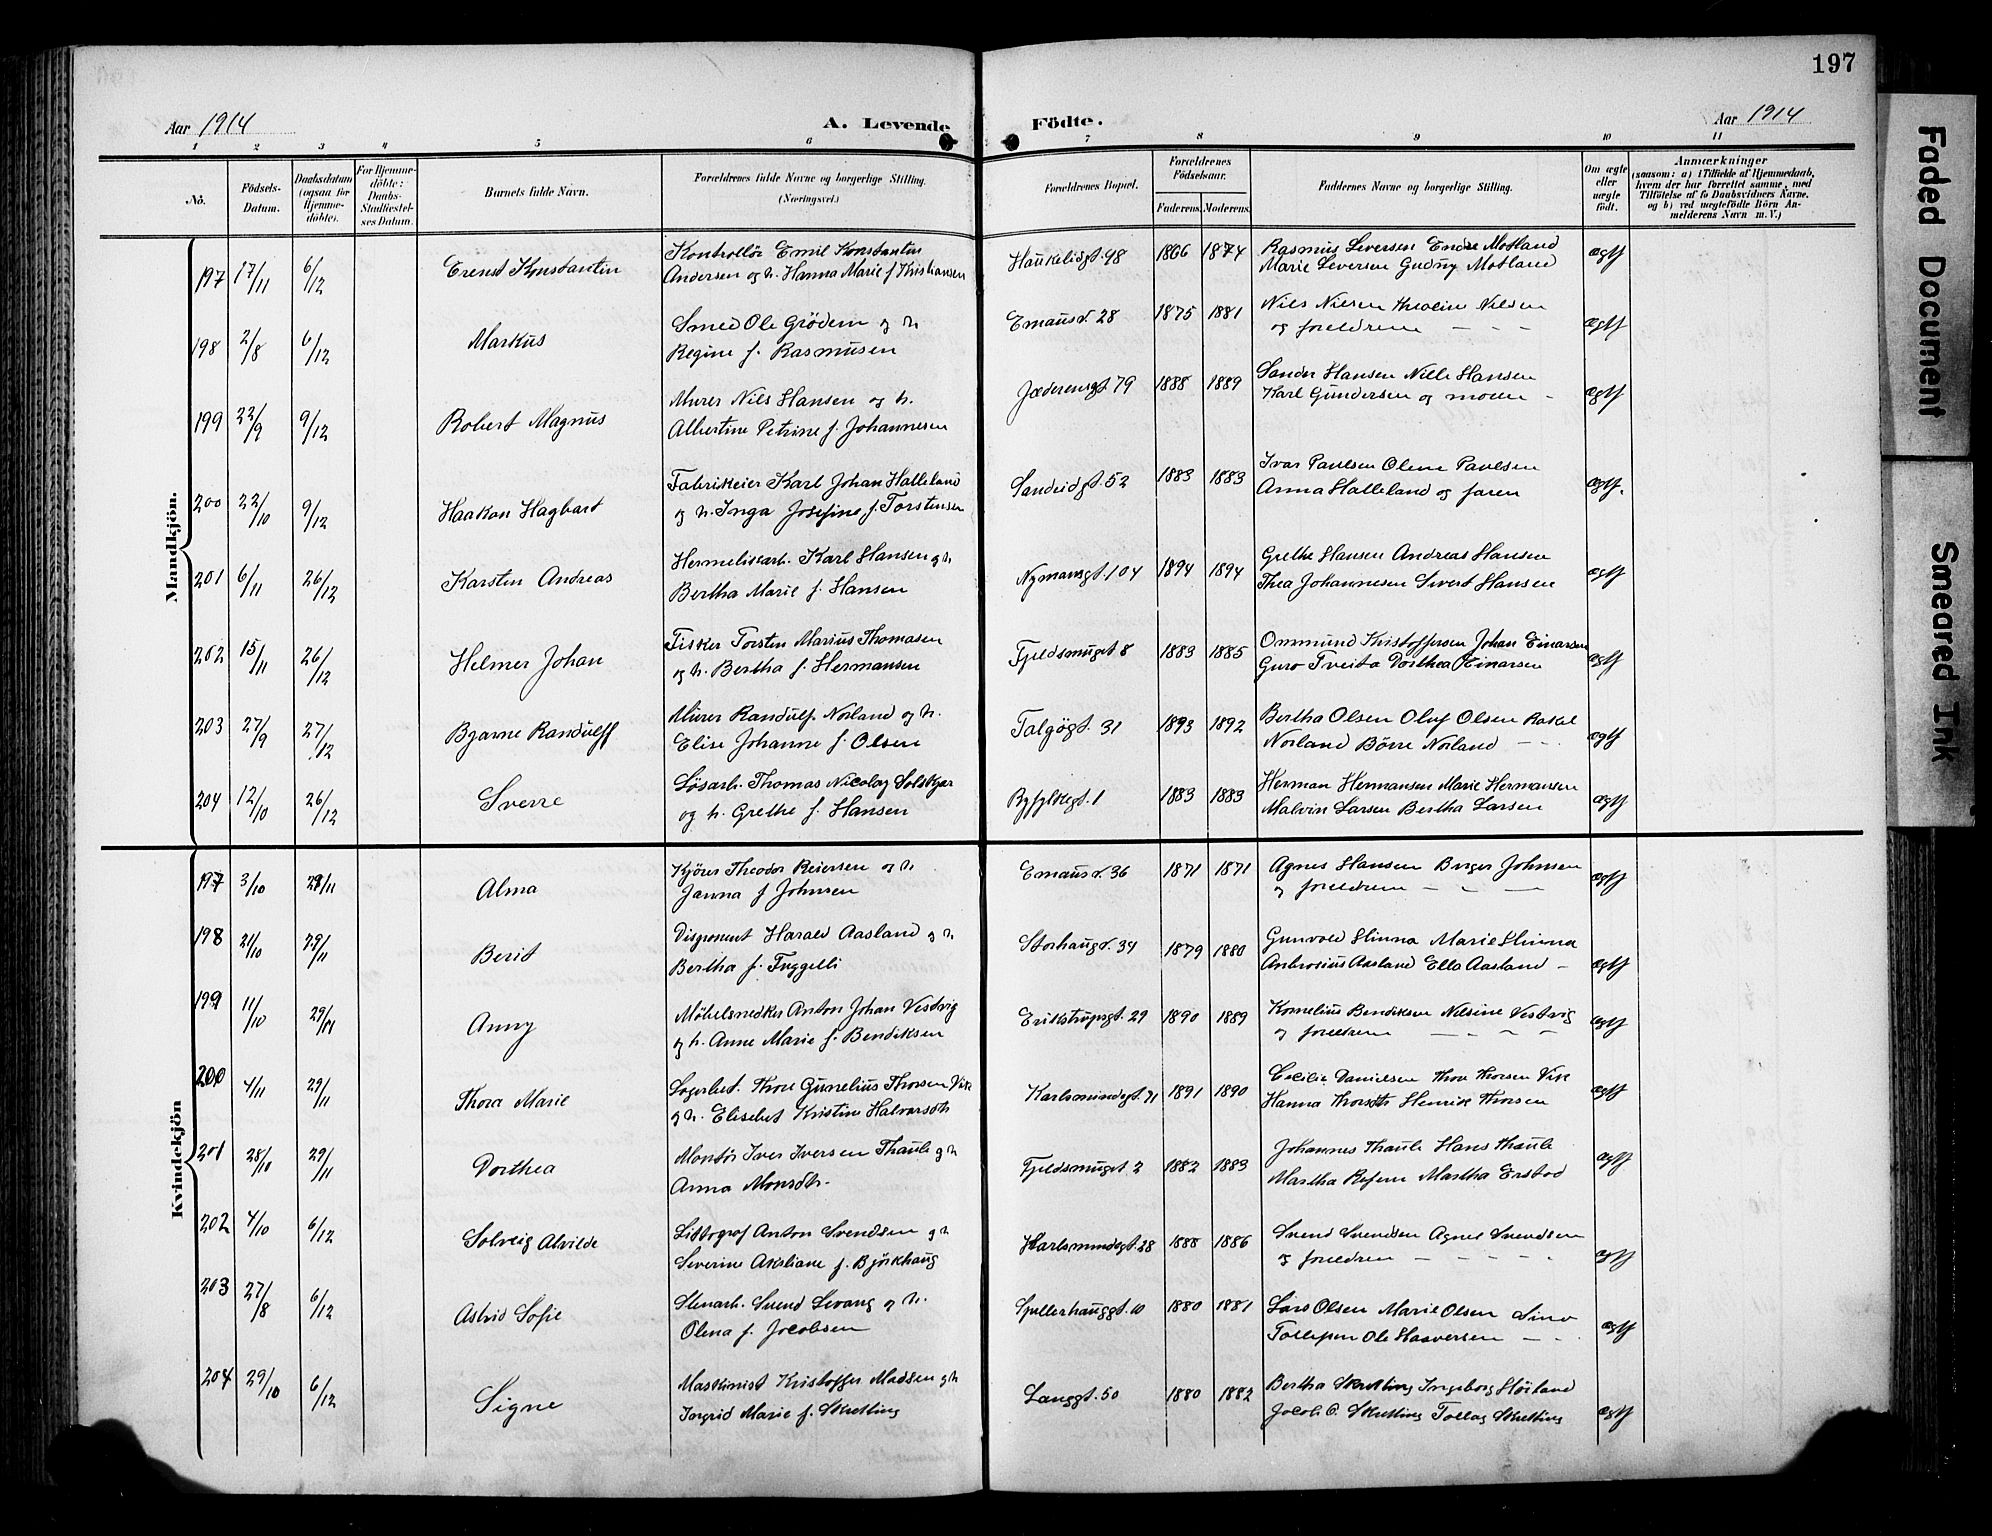 197
Aar 1914
A. Levende Födte.
Aar 1914
1 2 3 4 5 6 7 8 9 10 11
No.
Födsels-Datum.
Daabsdatum (ogsaa for Hjemme-döbte).
For Hjemme-döbte: Daabs-Stadfæstel-ses Datum.
Barnets fulde Navn.
Forældrenes fulde Navne og borgerlige Stilling. (Næringsvei.)
Forældrenes Bopæl.
Forældrenes Födselsaar.
Faderens. Moderens.
Faddernes Navne og borgerlige Stilling.
Om ægte eller uægte födt.
Anmærkninger
(saasom: a) i Tilfælde af Hjemmedaab,
hvem der har forrettet samme, med
Tilföielse af to Daabsvidners Navne,
og b) ved uægtefödte Börn An-
melderens Navn m. V.)
Mandkjön.
197 17/11 6/12 Ernst Konstantin
Kontrollör Emil Konstantin
Andersen og h. Hanna Marie f. Kristiansen
Haukeligt. 48 1866 1874
Rasmus Seversen Endre Motland
Marie Seversen Gudny Motland
ægt
198 2/8 6/12 Markus
Smed Ole Grödem og h
Regine f. Rasmusen
Emausv. 28 1875 1881
Nils Nilsen Theoline Nilsen
og foreldrene
ægt
199 22/9 9/12 Robert Magnus
Murer Nils Hansen og h.
Albertine Petrine f. Johannesen
Jæderensgt. 79 1888 1889
Sander Hansen Nille Hansen
Karl Gundersen og moren
ægt
200 22/10 9/12 Haakon Hagbart
Fabrikeier Karl Johan Halleland
og h. Inga Josefine f. Torstensen
Sandeidgt. 52 1883 1883
Ivar Paulsen Oline Paulsen
Anna Halleland og faren
ægt.
201 6/11 26/12 Karsten Andreas
Hermetikarb. Karl Hansen og h
Bertha Marie f. Hansen
Nymansgt. 104 1894 1894
Grethe Hansen Andreas Hansen
Thea Johannesen Sivert Hansen
ægt
202 15/11 26/12 Helmer Johan
Fisker Torsten Marius Thomasen
og h. Bertha f. Hermansen
Fjeldsmuget 8 1883 1885
Ommund Kristoffersen Johan Einarsen
Guro Tveita Dorthea Einarsen
ægt
203 27/9 27/12 Bjarne Randulff
Murer Randulf Norland og h.
Elise Johanne f. Olsen
Talgögt. 31 1893 1892
Bertha Olsen Oluf Olsen Rakel
Norland Börre Norland
ægt
204 12/10 26/12 Sverre
Lösarb. Thomas Nicolay Solskjær
og h. Grethe f. Hansen
Ryfylkegt. 1 1883 1883
Herman Hermansen Marie Hermansen
Malvin Larsen Bertha Larsen
ægt
Kvindekjön
197 3/10 29/11 Alma
Kjörer Theodor Reiersen og h
Janna f Johnsen
Emausv. 36 1871 1871
Agnes Hansen Birger Johnsen
og foreldrene
ægt
198 21/10 29/11 Berit
Disponent Harald Aasland og h
Bertha f. Fuggelli
Storhaugv. 34 1879 1880
Gunvald Hinna Marie Hinna
Ambrosius Aasland Ella Aasland
ægt
199 11/10 29/11 Anny
Möbelsnedker Anton Johan Vestvig
og h. Anne Marie f. Bendiksen
Erikstrupsgt. 29 1890 1889
Kornelius Bendiksen Nilsine Vestvig
og foreldrene
ægt
200 4/11 29/11 Thora Marie
Thore Gunelius Thorsen Vik
og h. Elisebet Kristine Halvorsdtr
Karlsmindegt. 71 1891 1890
Cecilie Danielsen Thore Thorsen Vik
Hanna Thorsdtr Henrik Thorsen
ægt
201 28/10 29/11 Dorthea
Montör Iver Iversen Thaule og h
Anna Monsdtr.
Fjeldsmuget 2 1882 1883
Johannes Thaule Hans Thaule
Martha Refsnes Martha Erstad
ægt
202 4/10 6/12 Solveig Alvilde
Littograf Anton Svendsen og h
Severine Akseliane f. Björkhaug
Karlsmindegt. 28 1888 1886
Svend Svendsen Agnes Svendsen
og foreldrene
ægt
203 27/8 6/12 Astrid Sofie
Stenarb. Svend Levang og h.
Olena f. Jacobsen
Spilderhauggt. 10 1880 1881
Lars Olsen Marie Olsen Sina
Tollefsen Ole Haaversen
ægt
204 29/10 6/12 Signe
Maskinist Kristoffer Madsen og h
Ingrid Marie f. Skretting
Langgt. 50 1880 1882
Bertha Skretting Ingeborg Höiland
Jacob O. Skretting Tollag Skretting
ægt
Faded Document
Smeared Ink